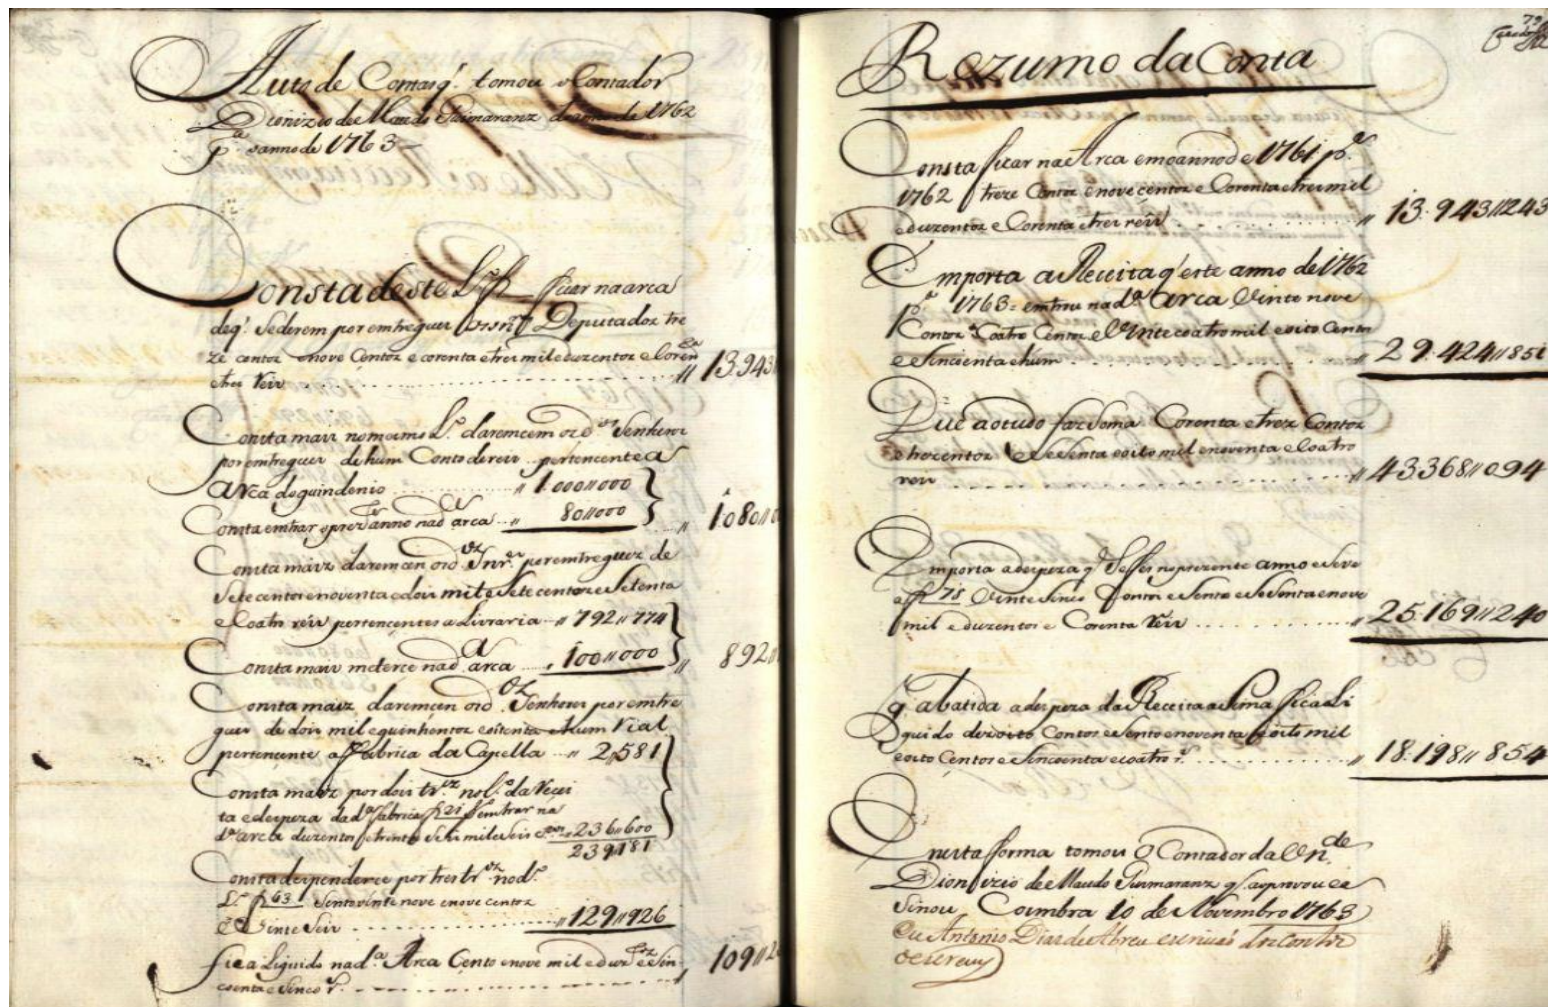 Auto de Contas q. tomou o Contador
Dionizio de Macedo Guimaranz do anno de 1762
pa. o anno de 1763
Consta deste L.º ficar na arca
deq. Sederem por entregues os Snr.es Deputados tre
ze contos enove Centos e corenta etres mil eduzentos e Coren
etres Reis . . . . . . . . " 13.943"
Consta mais nomesmo L.º daremcem os d.os Senhores
por entregues de hum Conto de reis pertencente a
Arca do quindenio . . . . " 1.000"000
Consta entrar oprez.te anno nad.a arca . . " 80"000 " 1080"
Consta maiz daremcen os d.os Snr.es por entreguez de
Sete centos enoventa edois mil e Sete centos e Setenta
e Coatro réis pertencentes a Livraria . . " 792"774
Consta mais meterce nad.a arca . . . . " 100"000 " 892"
Consta maiz daremcen os d.os Senhores por entre
gues de dois mil equinhentos eoitenta ehum Reis
pertencente a Fabrica da Capella . . " 2"581
Consta maiz por dois tr.os no L.º da Recei
ta edespeza dad.a fabrica f 21 entrar na
d.a arca duzentos etrinta e Seis mil e Seis " 236"600
239"181
Consta despenderce por tres tr.os no d.º
L.º f 63 Sento vinte nove enove centos
e Vinte Seis . . . . . . . . " 129"926
fica Liquido nad.a Arca Cento enove mil e duz.tos e Sin
coenta e Sinco r.s . . . . . . . . 109"2
79
Rezumo da Conta
Consta ficar na Arca em o anno de 1761 p.a
1762 treze Contos enove centos e Corenta etres mil
eduzentos e Corenta etres réis . . . . . . " 13.943"243
Emporta a Receita q' este anno de 1762
p.a 1763 = entrou nad.a arca Vinte nove
Contos e Coatro Centos e Vinte coatro mil e oito Centos
e e Sincoenta e hum . . . . . . " 29.424"851
Que aotudo faz Soma Corenta etrez Contos
etrezentos e Sesenta eoito mil enoventa e Coatro
reis . . . . . . . . " 43.368"094
Emporta adespeza q' Sefes noprezente anno e Seve
a f 78 Vinte Sinco Contos e Sento e Sesenta enove
mil eduzentos e Corenta Reis . . . . . . " 25.169"240
q' abatida adespeza da Receita asima fica Li
quido dezoito Contos e Sento enoventa e oito mil
eoito Centos e Sincoenta e coatro r.s . . . . . . " 18.198"854
Nesta forma tomou o Contador da Un.de
Dionizio de Macedo Guimaranz q' aaprovou e a
Sinou Coimbra 10 de Novembro 1763
Eu Antonio Dias de Abreu escrivaõ dos Contos
oescrevy